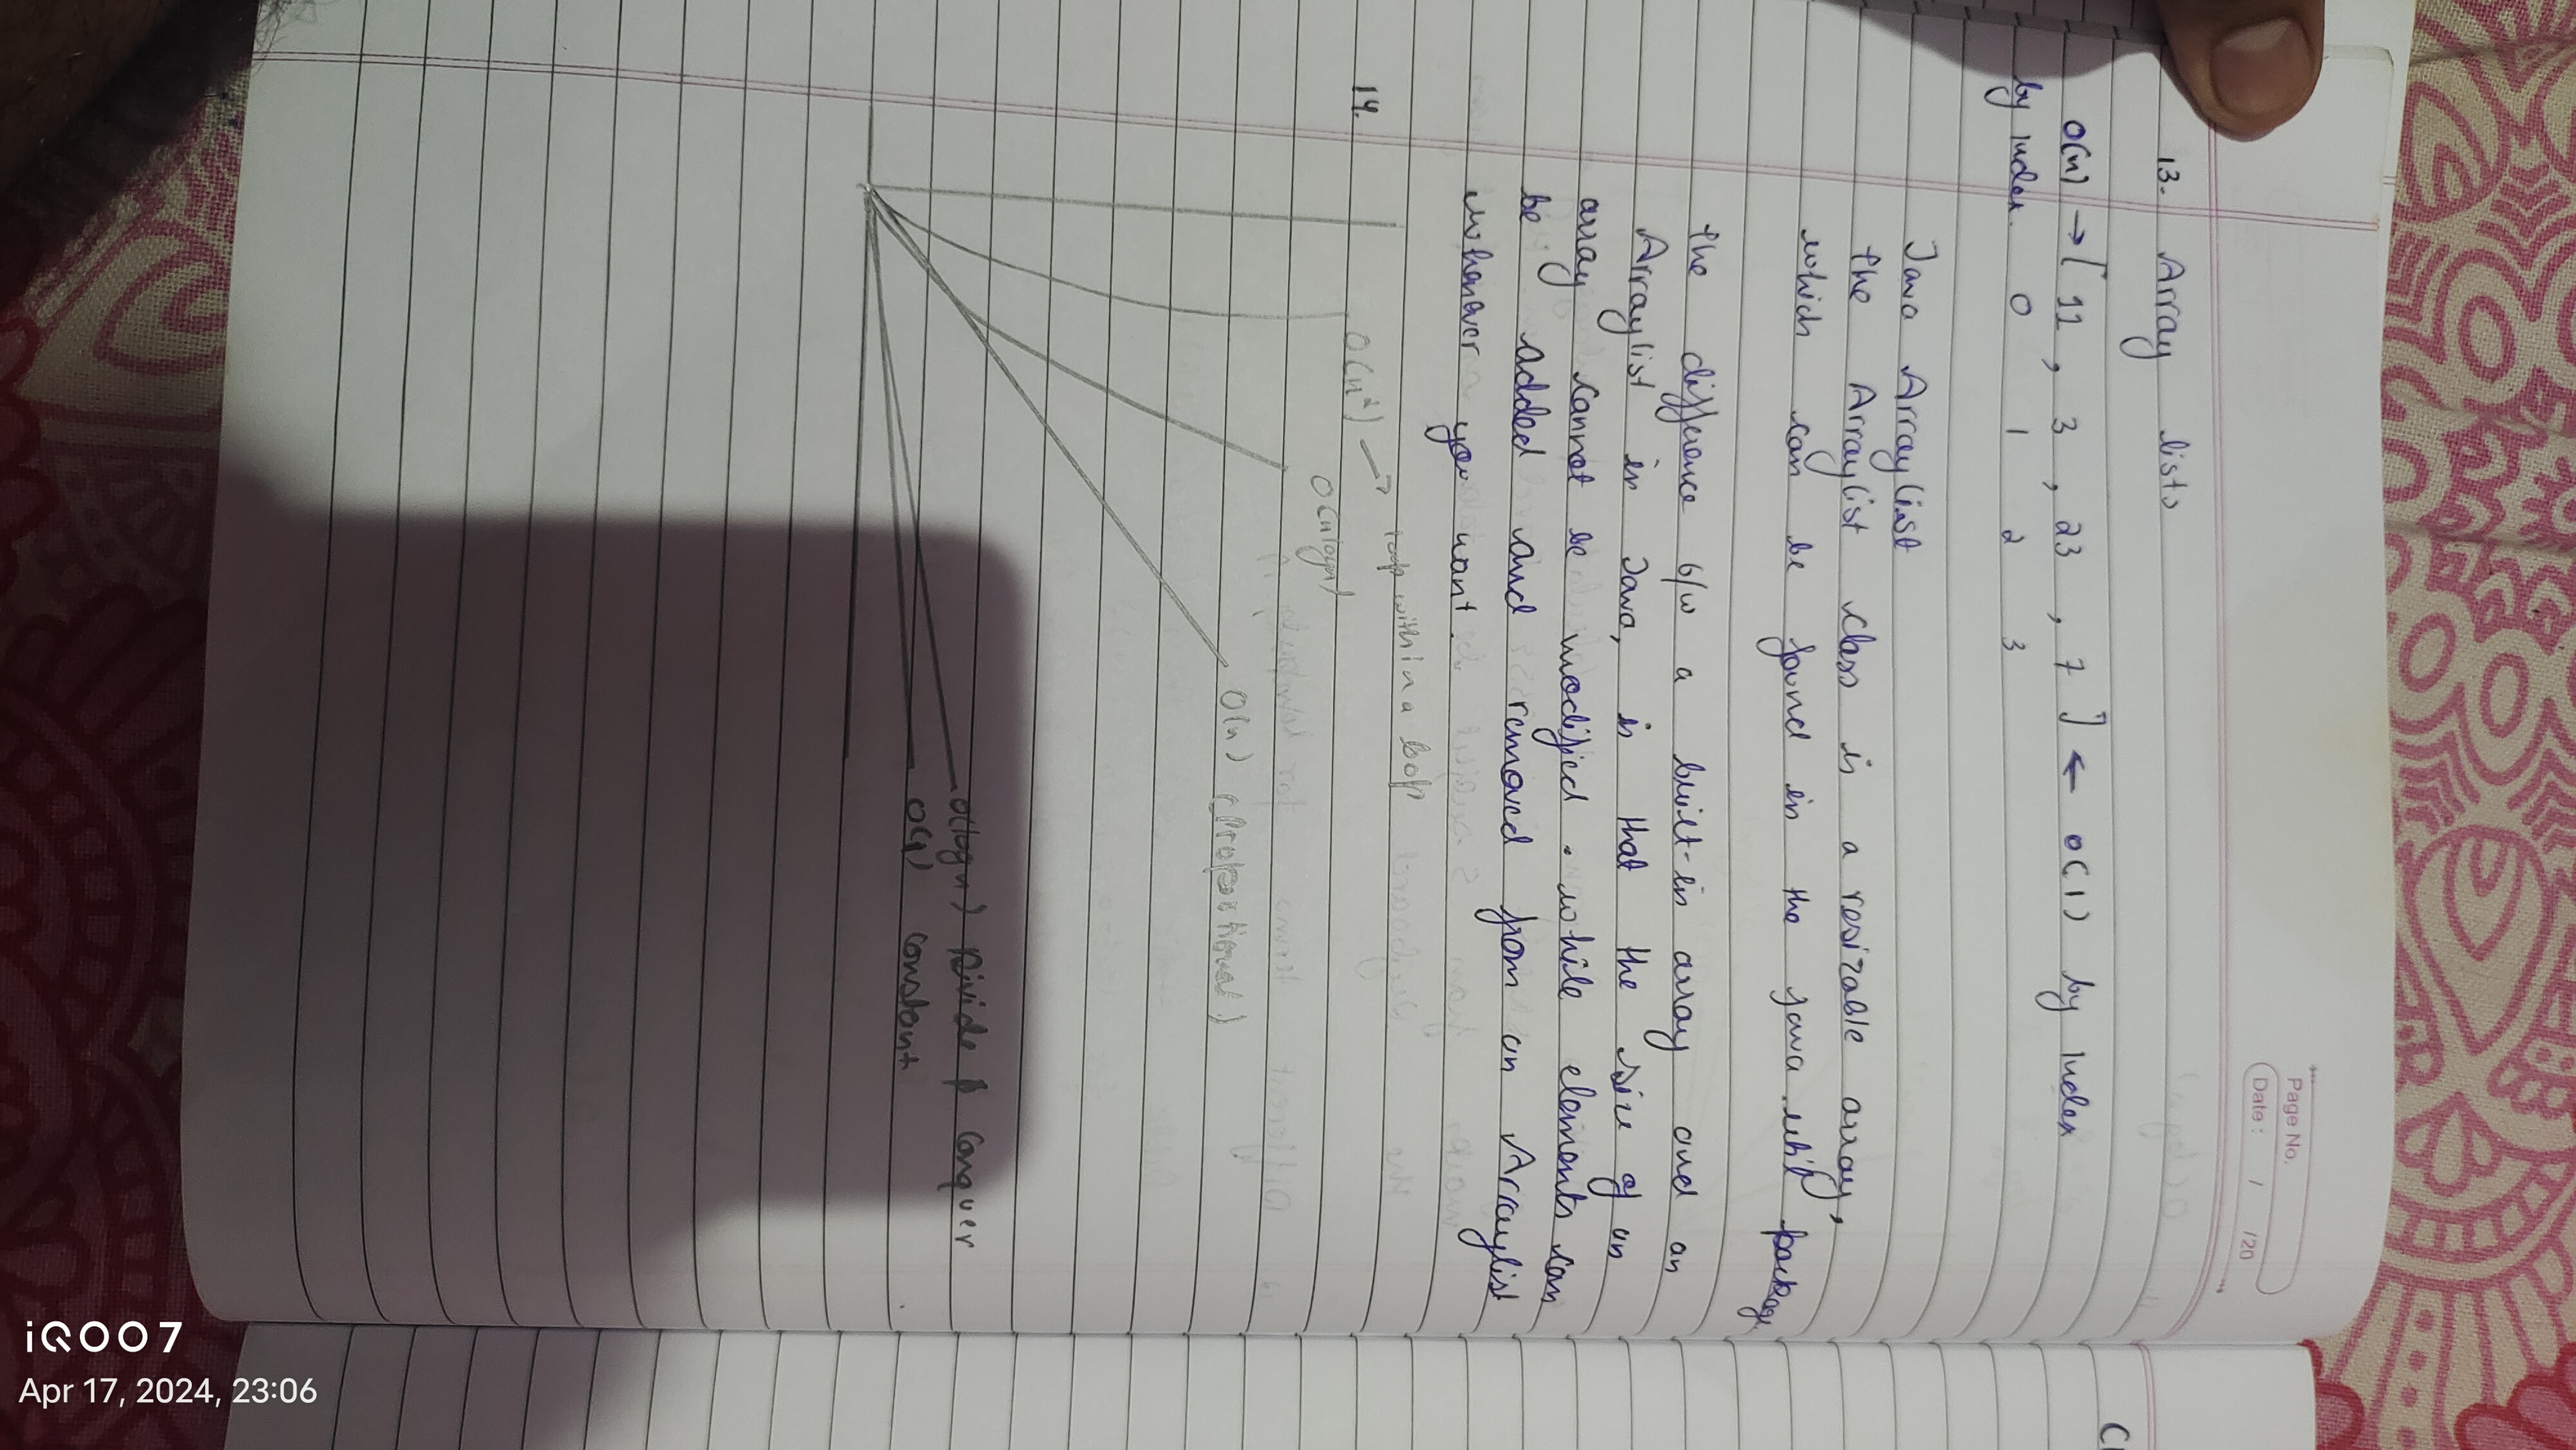 Page No.
Date : / /20
13. Array lists
O(n) → [ 11 , 3 , 23 , 7 ] ← O(1) by Index
by Index. 0 1 2 3
Java Arraylist
the Arraylist class is a resizable array,
which can be found in the java.util package
the difference b/w a built-in array and an
Arraylist in Java, is that the size of an
array cannot be modified. while elements can
be added and removed from an Arraylist
whenever you want.
14.
O(n²) → loop within a loop
O(nlogn)
O(n) (Proportional)
O(logn) Divide & Conquer
O(1) constant
iQOO 7
Apr 17, 2024, 23:06